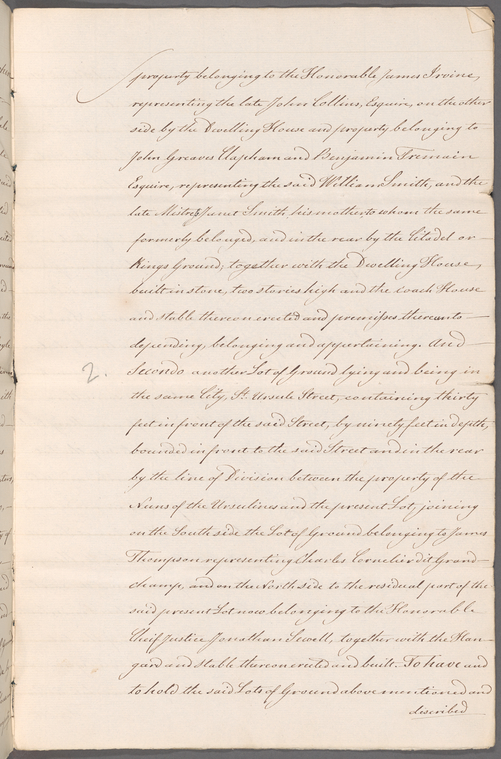 property belonging to the Honorable James Irvine,
representing the late John Collins, Esquire, on the other
side by the Dwelling House and property belonging to
John Greaves Clapham and Benjamin Tremain
Esquire, representing the said William Smith, and the
late Mistress Janet Smith, his mother, to whom the same
formerly belonged, and in the rear by the Citadel or
Kings Ground, together with the Dwelling House,
built in stone, two stories high and the coach House
and stable thereon erected and premises thereunto
depending, belonging and appertaining. And
2. Secondo another Lot of Ground lying and being in
the same City, St. Ursule Street, containing thirty
feet in front of the said Street, by ninety feet in depth,
bounded in front to the said Street and in the rear
by the line of Division between the property of the
Nuns of the Ursulines and the present Lot, joining
on the South side the Lot of Ground belonging to James
Thompson representing Charles Cornelier dit Grand
champ, and on the North side to the residual part of the
said present Lot now belonging to the Honorable
Chief Justice Jonathan Sewell, together with the Han
gard and stable thereon erected and built. To have and
to hold the said Lots of Ground above mentioned and
described